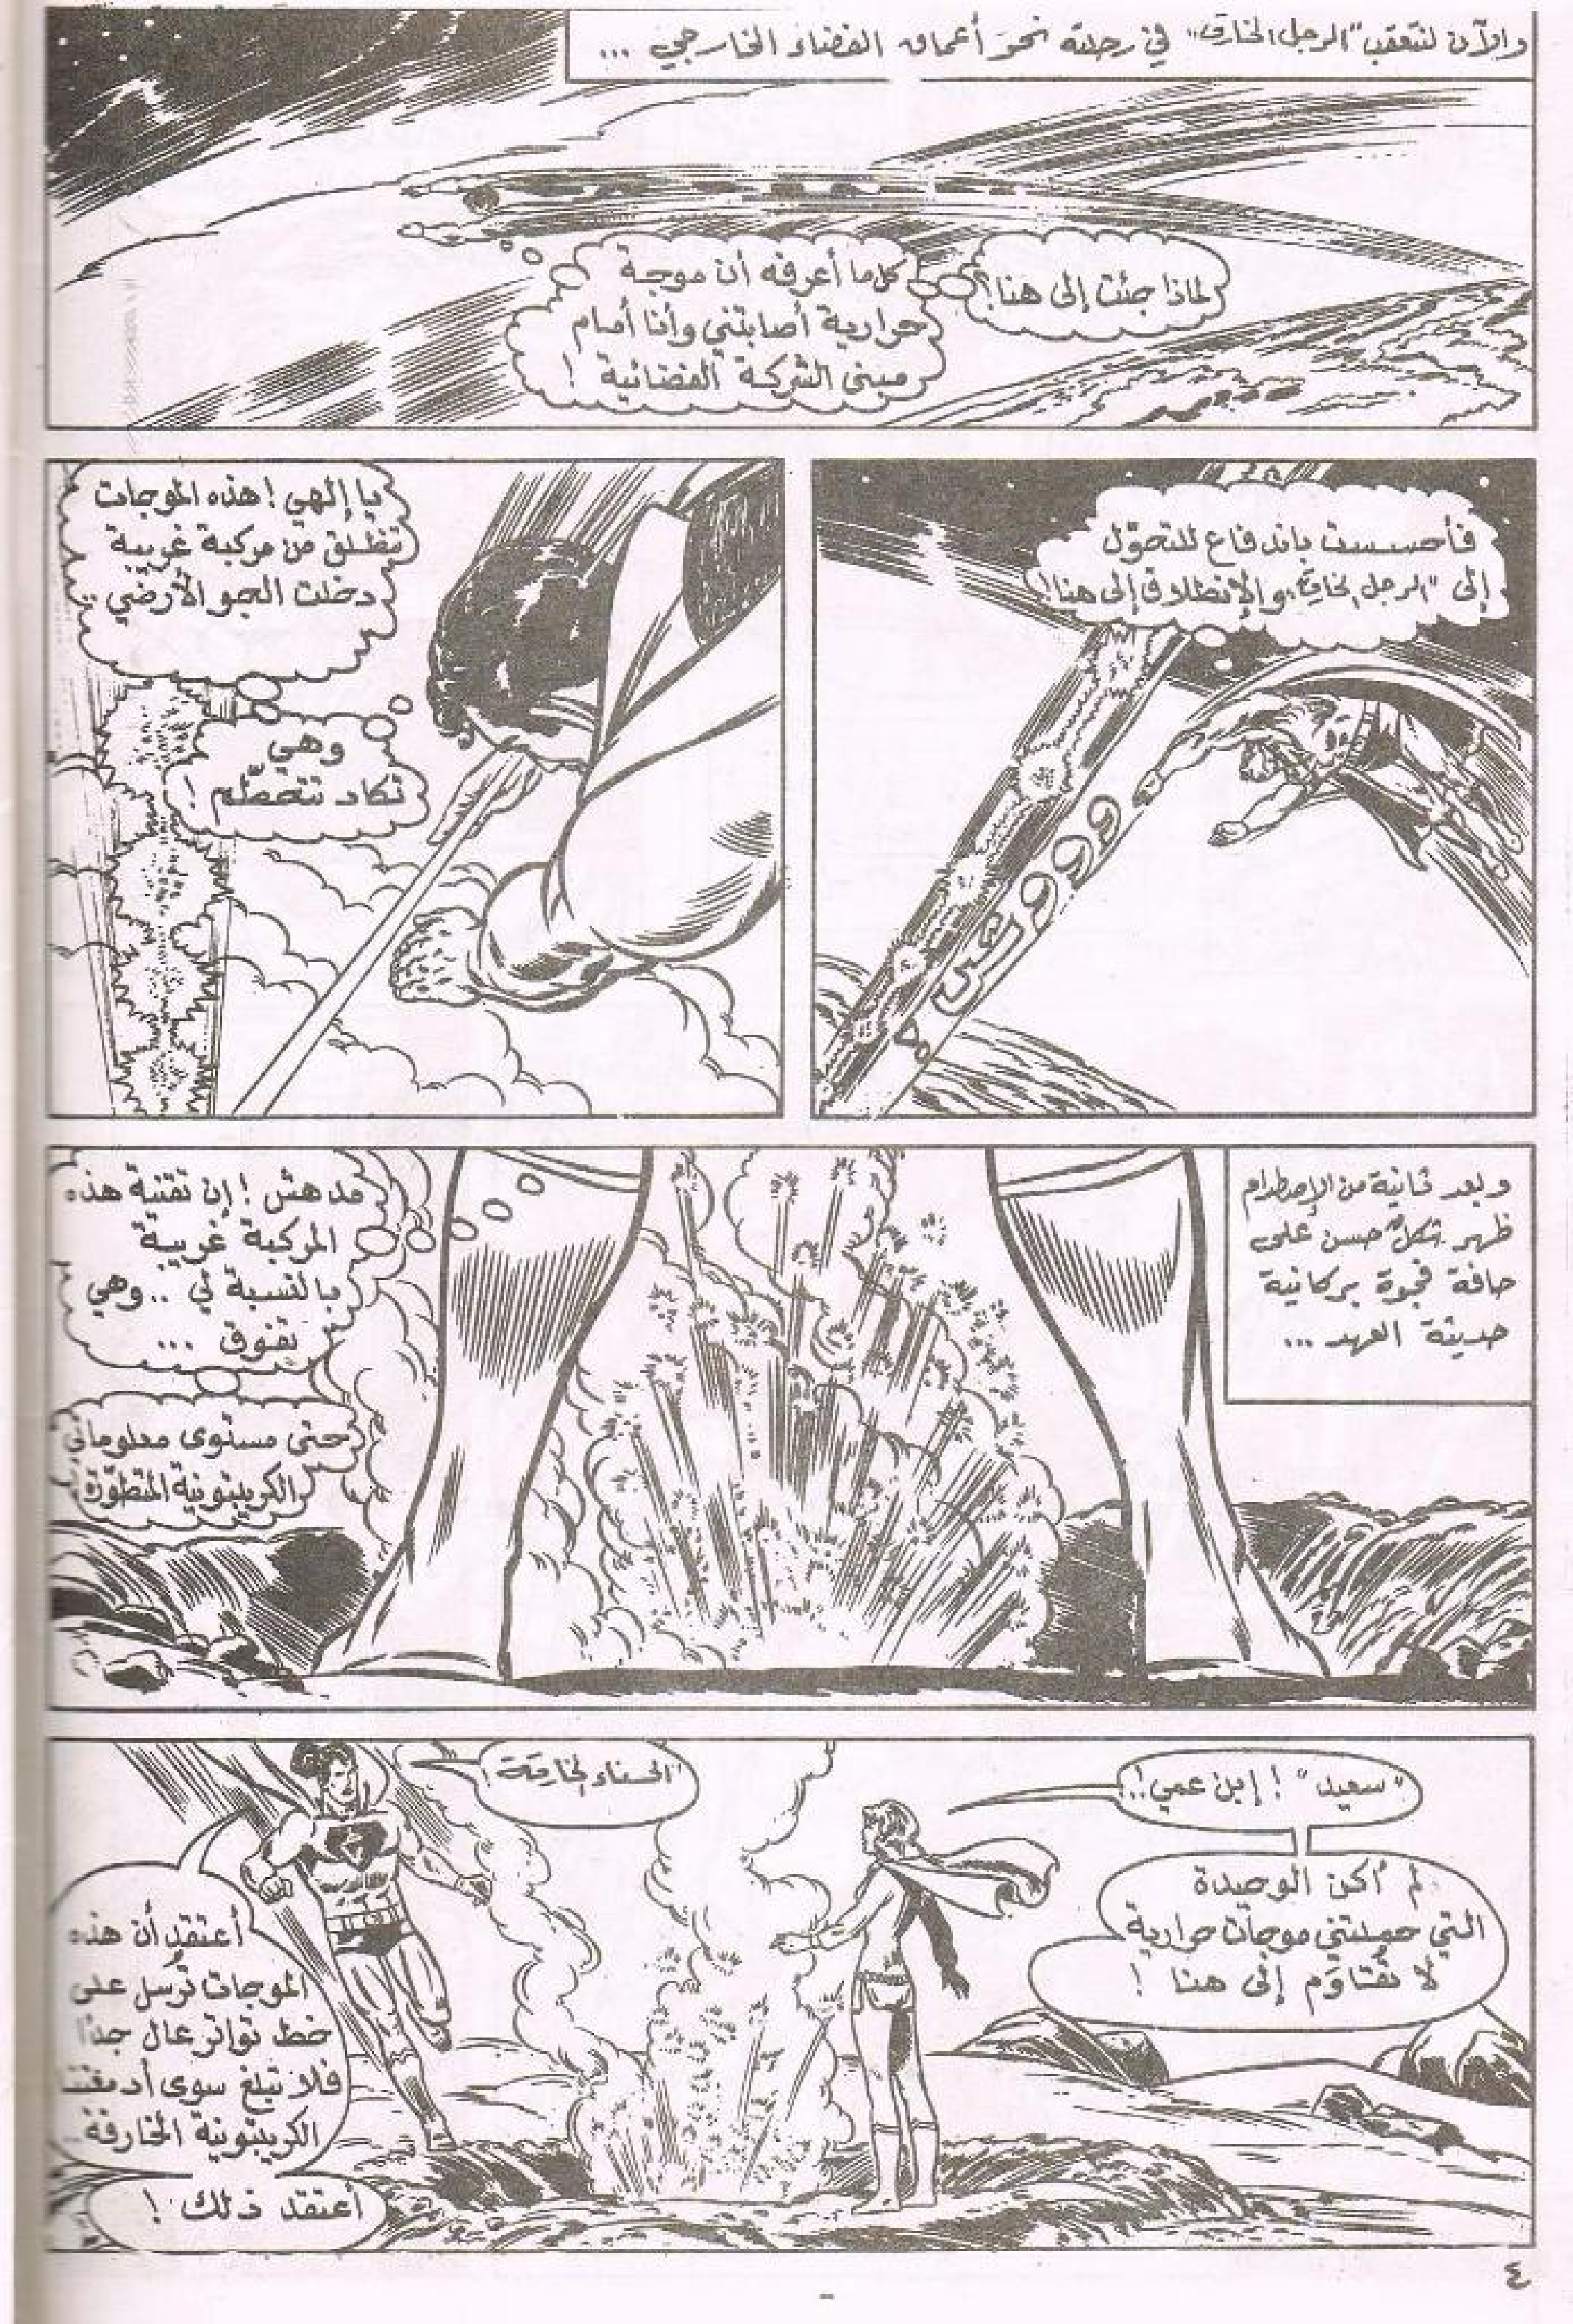 والآن لنتعقب "الرجل الخارق" في رحلته نحو أعماق الفضاء الخارجي ...
لماذا جئت إلى هنا؟
كل ما أعرفه أن موجة
حرارية أصابتني وأنا أمام
مبنى الشركة الفضائية !
فأحسست باندفاع للتحوّل
إلى "الرجل الخارق" والإنطلاق إلى هنا!
وووووش
يا إلهي ! هذه الموجات
تنطلق من مركبة غريبة
دخلت الجو الأرضي ..
وهي
تكاد تتحطّم !
وبعد ثانية من الإصطدام
ظهر شكلٌ حسن على
حافة فجوة بركانية
حديثة العهد ...
مدهش ! إن تقنية هذه
المركبة غريبة
بالنسبة لي .. وهي
تفوق ...
حتى مستوى معلوماتي
الكريبتونية المتطوّرة
"سعيد" ! إبن عمي !..
لم أكن الوحيدة
التي حملتني موجات حرارية
لا تُقاوَم إلى هنا !
الحسناء الخارقة !
أعتقد أن هذه
الموجات تُرسل على
خط تواتر عال جداً
فلا تبلغ سوى أدمغتنا
الكريبتونية الخارقة ..
أعتقد ذلك !
٤